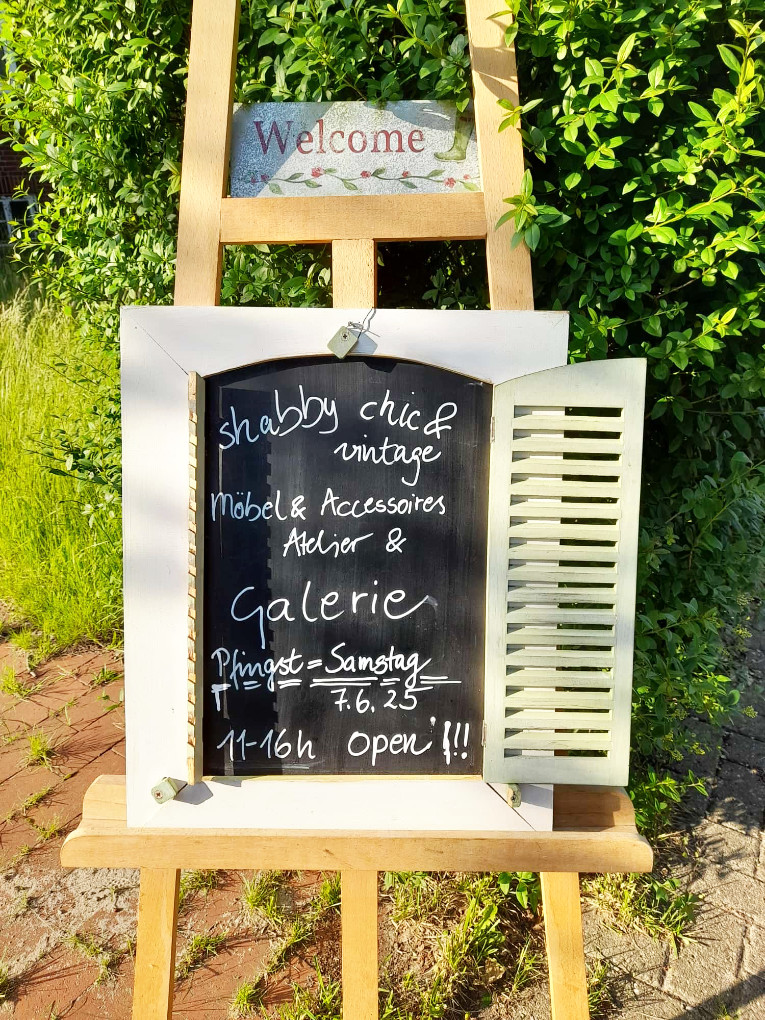 Welcome
shabby chic &
vintage
Möbel & Accessoires
Atelier &
Galerie
Pfingst=Samstag
7.6.25
11-16h open !!!